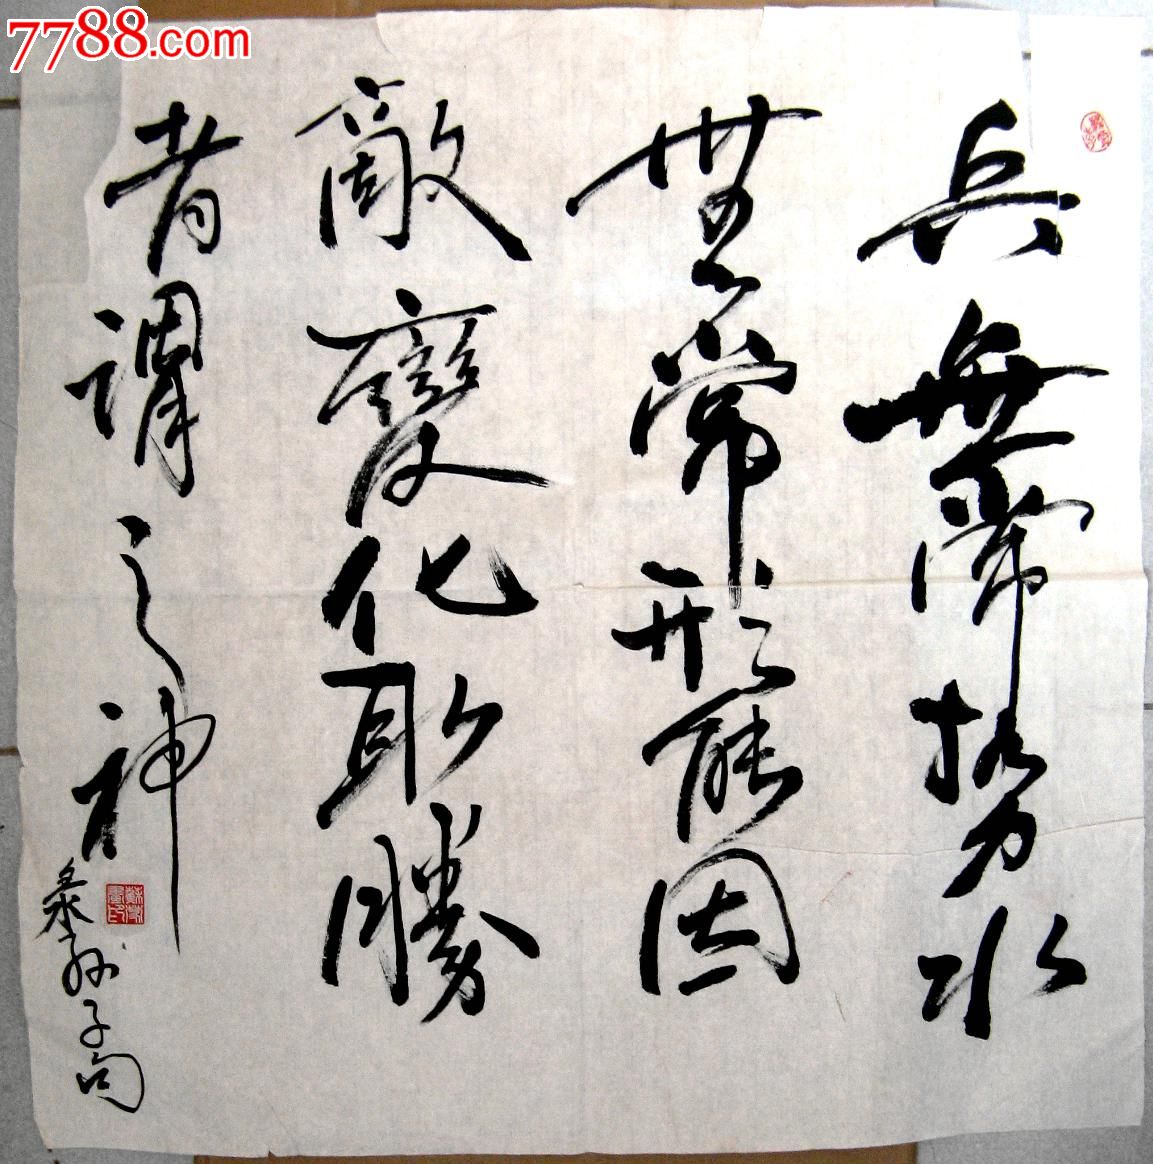 7788.com
兵無常勢水
無常形能因
敵變化取勝
者謂之神
彔孙子句